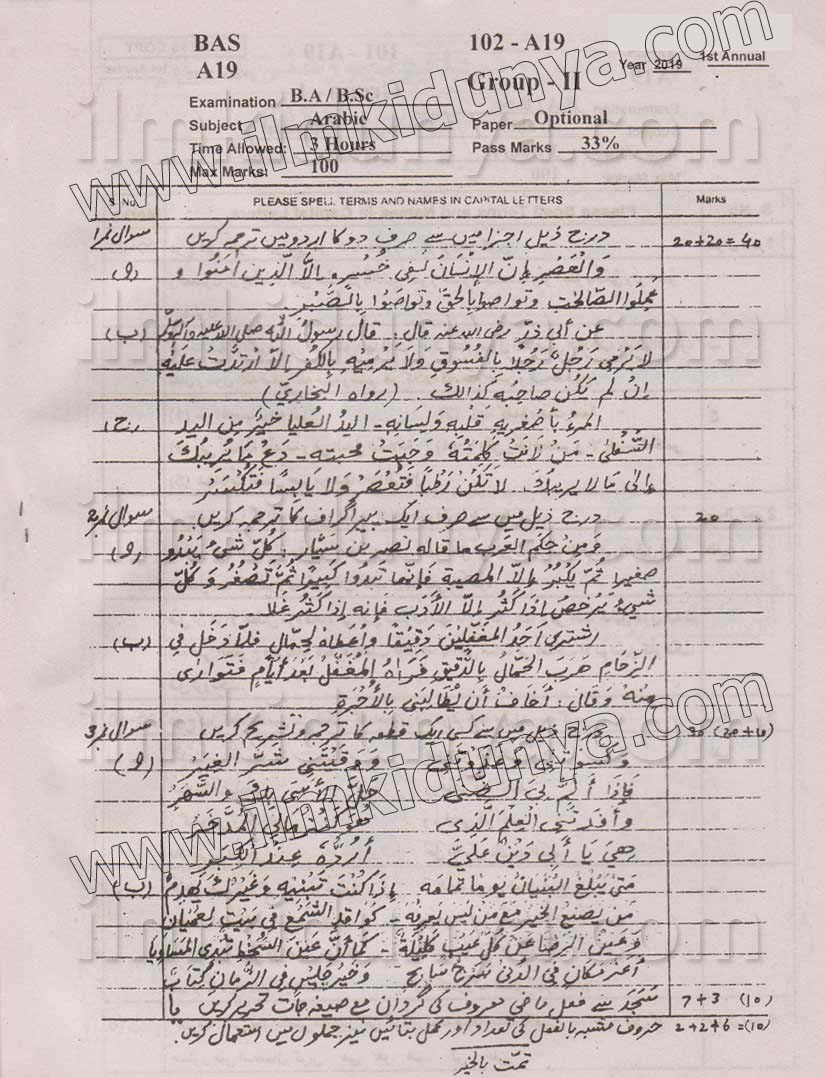 BAS 102 - A19
A19 Group - II Year 2019 1st Annual
Examination B.A / B.Sc
Subject Arabic Paper Optional
Time Allowed: 3 Hours Pass Marks 33%
Max Marks: 100
S. No. PLEASE SPELL TERMS AND NAMES IN CAPITAL LETTERS Marks
سوال نمبر 1 درج ذیل اجزا میں سے صرف دو کا اردو میں ترجمہ کریں 20+20=40
(ا) وَالْعَصْرِ إِنَّ الْإِنْسَانَ لَفِي خُسْرٍ إِلَّا الَّذِينَ آمَنُوا وَ
عَمِلُوا الصَّالِحٰتِ وتواصوا بالحقّ وتواصَوا بِالصَّبْرِ
(ب) عن أبي ذرٍّ رضی اللہ عنہ قال: قال رسولُ اللّٰہ صلی اللہ علیہ وآلہٖ وسلّم
لا يَرْمِي رَجُلٌ رَجُلًا بِالفُسُوقِ وَلَا يَرْمِيهِ بِالكُفرِ إلّا ارْتَدَّتْ عليهِ
إن لم يَكُنْ صاحبُه كذالك. (رواه البخاريّ)
(ج) المرءُ بأصغريهِ قلبِهِ وَلِسانِهِ - اليدُ العُليا خيرٌ مِن اليدِ
السُّفلى - مَنْ لانَتْ كلِمتُهُ وَجَبَتْ محبته - دَعْ مَا يُرِيبُكَ
إلى مَا لا يريبك لا تَكُنْ رَطْبًا فَتُعْصَرَ وَلا يَابِسًا فَتُكْسَرَ
سوال نمبر 2 درج ذیل میں سے صرف ایک پیراگراف کا ترجمہ کریں۔ 20
(ا) وَمِنْ حِكَمِ العَرَبِ ما قاله نصر بن سَيَّار: كُلُّ شيءٍ يَبْدُو
صغيرا ثُمَّ يَكْبُرُ إلّا المصيبة فَإنّها تبدوا كَبِيرًا ثُمَّ تَصْغُرُ وَكُلُّ
شيءٍ يَرْخصُ إذَا كَثُرَ إلّا الأَدَبَ فَإِنه إذا كَثُرَ غَلَا.
(ب) اشترى أحدُ المغفّلينَ دَقِيقًا وأعطاهُ لِحَمَّالٍ فلمّا دَخَلَ في
الزِّحامِ هَرَبَ الحمّالُ بِالدَّقِيقِ فَرَاهُ المُغَفَّلُ بَعْدَ أَيَّامٍ فَتَوَارَى
مِنهُ وَقَالَ: أخَافُ أن يُطَالِبَنِي بِالأُجْرَةِ
سوال نمبر 3 درج ذیل میں سے کسی ایک قطعہ کا ترجمہ و تشریح کریں 30 (20+10)
(ا) وَكَسَوْتَنِي وَغَذَوْتَنِي وَوَقَيْتَنِي شَرَّ الغِيَرْ
فَإذَا أَلَمَّ بِي والسَّهَرْ
وأفَدْتَنِي العِلْمَ الَّذِي
هِيَ يَا أبي دَيْنٌ عَلَيَّ أرُدُّهُ عِنْدَ الكِبَرْ
(ب) مَتَى يَبْلُغُ البُنْيَانُ يوما تمامَه إذَا كنْتَ تَبْنِيهِ وَغَيْرُكَ يَهْدِمُ
مَن يصنعِ الخيرَ معَ مَن ليسَ يَعْرِفُهُ - كَوَاقِدِ الشَّمْعِ في بَيْتٍ لِعُمْيَانِ
وَعَينُ الرِّضا عن كُلِّ عَيبٍ كَلِيلَةٌ - كما أنَّ عَيْنَ السُّخطِ تُبْدِي المَسَاوِيَا
أعَزُّ مكانٍ في الدُّنى سَرْجُ سَابِحٍ وَخَيرُ جَلِيسٍ في الزَّمانِ كِتَابُ
سَجَدَ سے فعل ماضی معروف کی گردان مع صیغہ جات تحریر کریں یا 7+3 (10)
حروف مشبہ بالفعل کی تعداد اور عمل بتائیں نیز جملوں میں استعمال کریں۔ 2+2+6=(10)
تمّت بالخیر
www.ilmkidunya.com
www.ilmkidunya.com